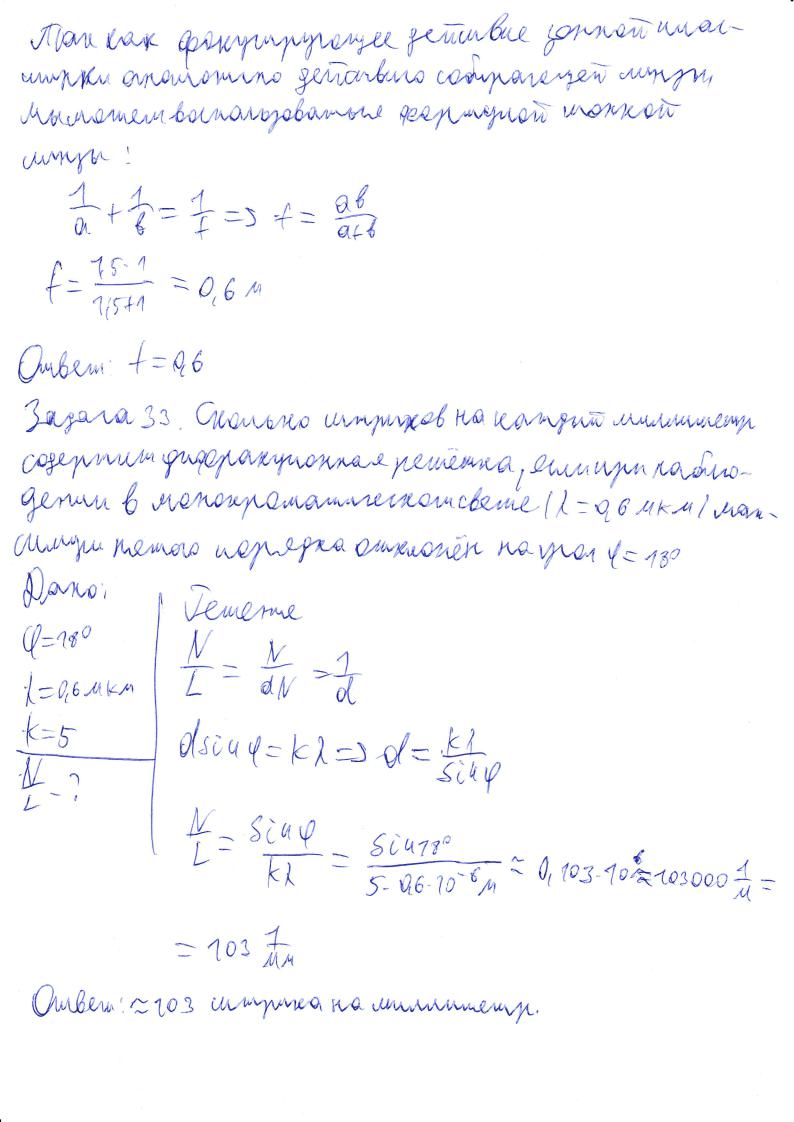 Так как фокусирующее действие зонной плас-
тинки аналогично действию собирающей линзы,
мы можем воспользоваться формулой тонкой
линзы:
1/a + 1/b = 1/f => f = ab/(a+b)
f = 1,5·1/(1,5+1) = 0,6 м
Ответ: f = 0,6
Задача 33. Сколько штрихов на каждый миллиметр
содержит дифракционная решётка, если при наблю-
дении в монохроматическом свете (λ = 0,6 мкм) мак-
симум пятого порядка отклонён на угол φ = 18°
Дано:
φ = 18°
λ = 0,6 мкм
k = 5
N/L - ?
Решение
N/L = N/dN = 1/d
d sin φ = kλ => d = kλ/sin φ
N/L = sin φ/kλ = sin 18°/(5·0,6·10⁻⁶ м) ≈ 0,103·10⁶ ≈ 103000 1/м =
= 103 1/мм
Ответ: ≈ 103 штриха на миллиметр.